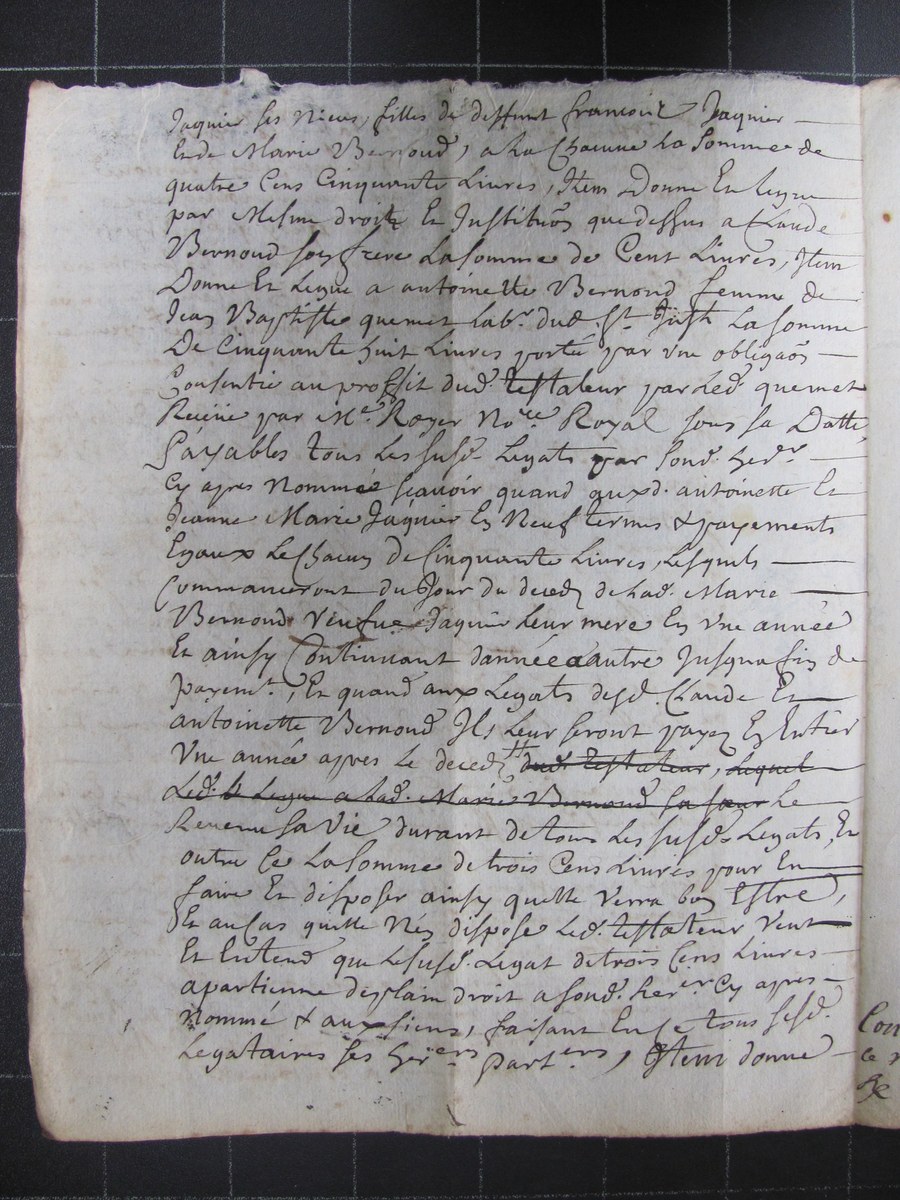 Jaquier ses Nieces, filles de deffunt francois Jaquier
Et de Marie Bernoud, a la Chacune La Somme de
quatre Cens Cinquante Livres, Item Donne Et legue
par Mesme droit Et Institu͠on que dessus a Claude
Bernoud son frere La somme de Cent Livres, Item
Donne Et Legue a antoinette Bernoud femme de
Jean Baptiste quemet lab.r dud. St. Just La somme
De Cinquante huit Livres portée par une obliga͠on
Consentie au proffit dud. testateur par Led. quemet
Receue par M.e Royer No.re Royal sous sa Datte,
Payables tous Les susd. Legats par sond. her.r
Cy apres Nommée scavoir quand auxd. antoinette Et
Jeanne Marie Jaquier En Neuf termes & payements
Egaux Le Chacun de Cinquante Livres, Lesquels
Commanceront du Jour du deced de Lad. Marie
Bernoud Veufue Jaquier Leur mere En Une année
Et ainsy Continuant dannée a autre Jusqua fin de
payem.t, Et quand aux Legats desd. Claude Et
antoinette Bernoud Ils Leur seront payez En Entier
Une année apres Le deced dud. testateur, Lequel
Led. Legue a Lad. Marie Bernoud sa sœur Le
Revenu sa Vie durant de tous Les susd. Legats, En
outre Ce La somme de trois Cens Livres pour En
faire Et disposer ainsy quelle Verra bon Estre,
Et au Cas quelle Nen dispose Led. testateur Veut
Et Entend que Le susd. Legat de trois Cens Livres
apartienne de plain droit a sond. her.er Cy apres
Nommé & aux siens, faisant En Ce tous sesd.
Legataires ses her.ers part.ers, Item donne